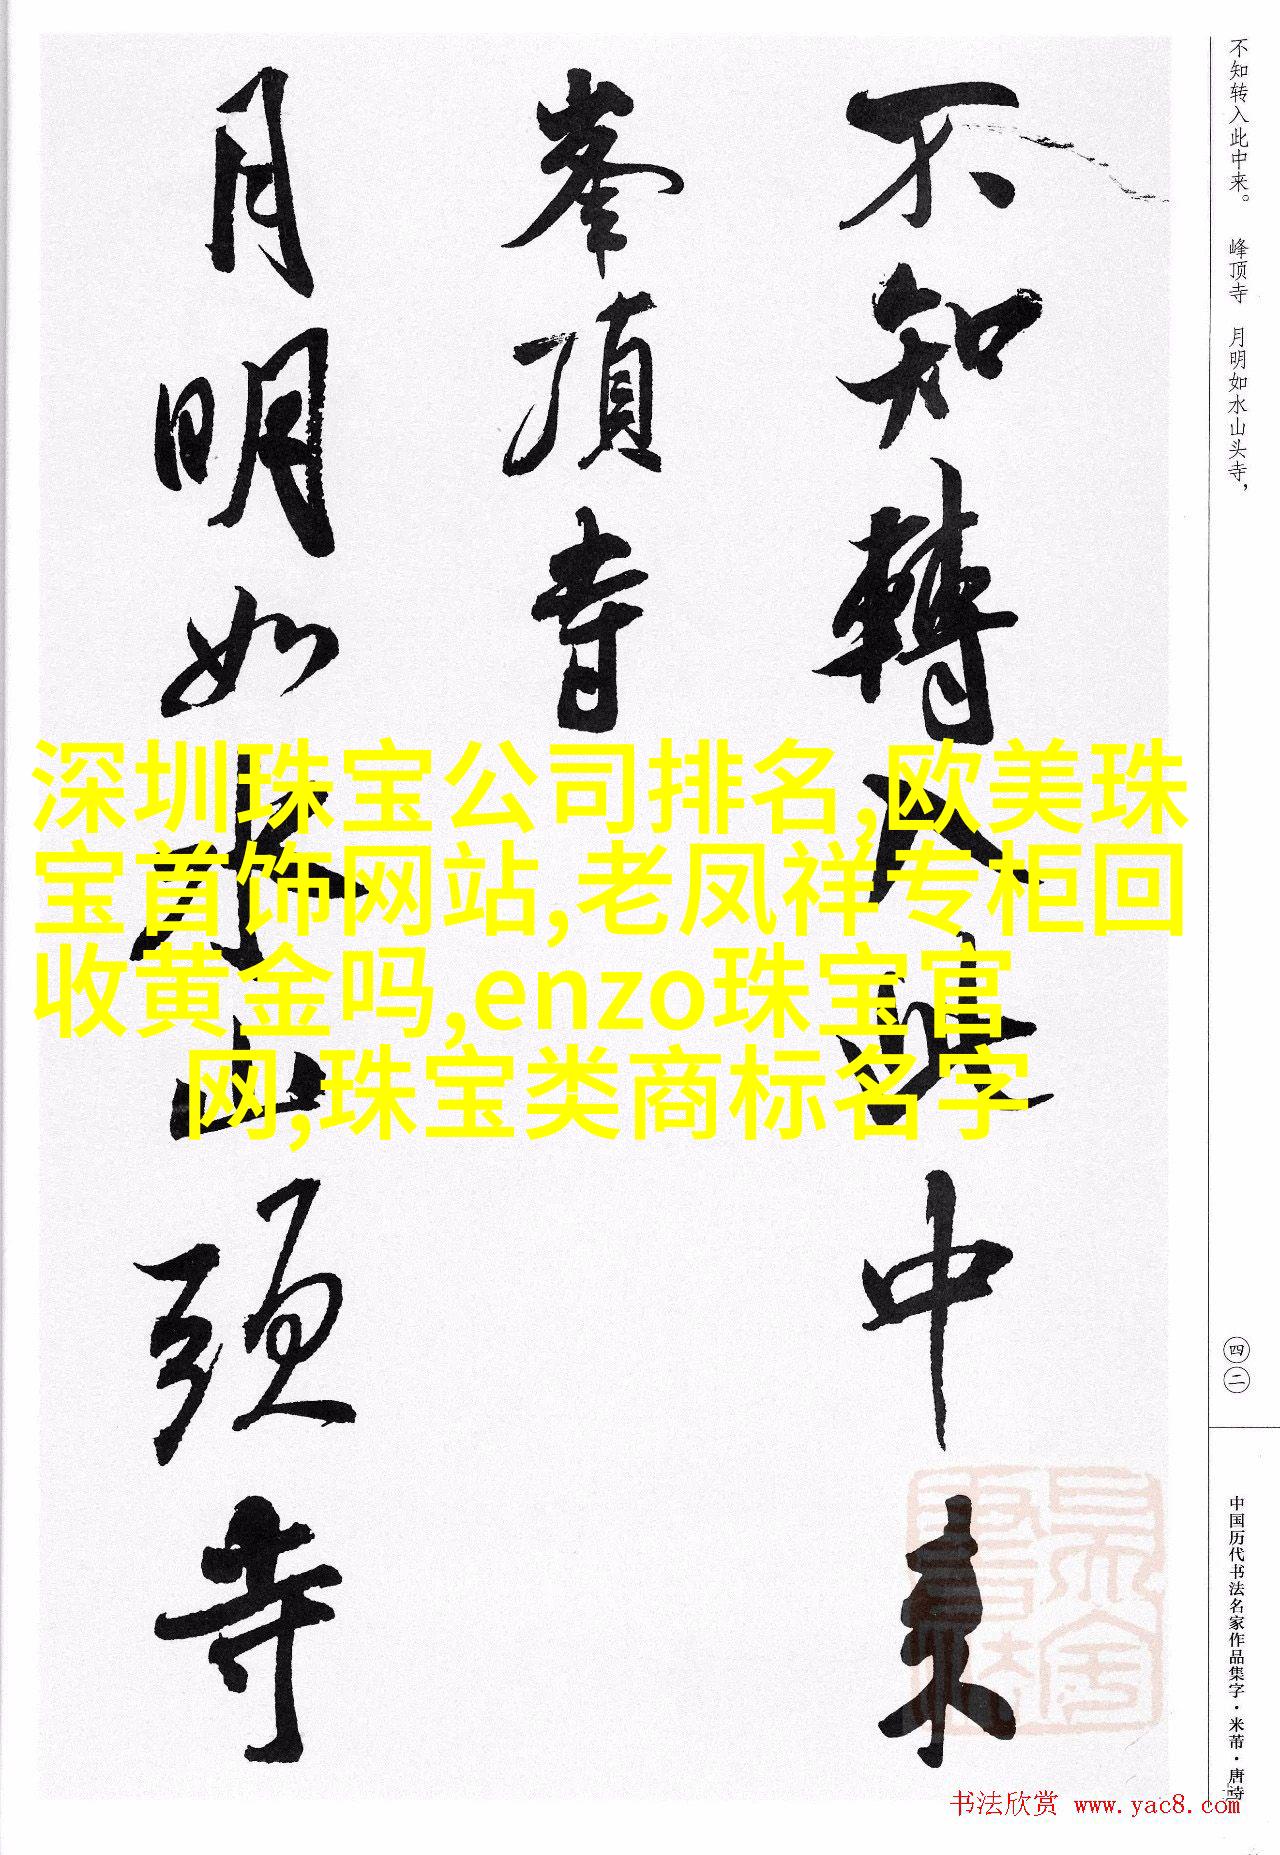 不知转入此中来。 峰顶寺 月明如水山头寺，
不知轉入此中来
峯頂寺
月明如水山頭寺
深圳珠宝公司排名,欧美珠
宝首饰网站,老凤祥专柜回
收黄金吗,enzo珠宝官
网,珠宝类商标名字
四二
中国历代书法名家作品集字·米芾·唐诗
书法欣赏 www.yac8.com